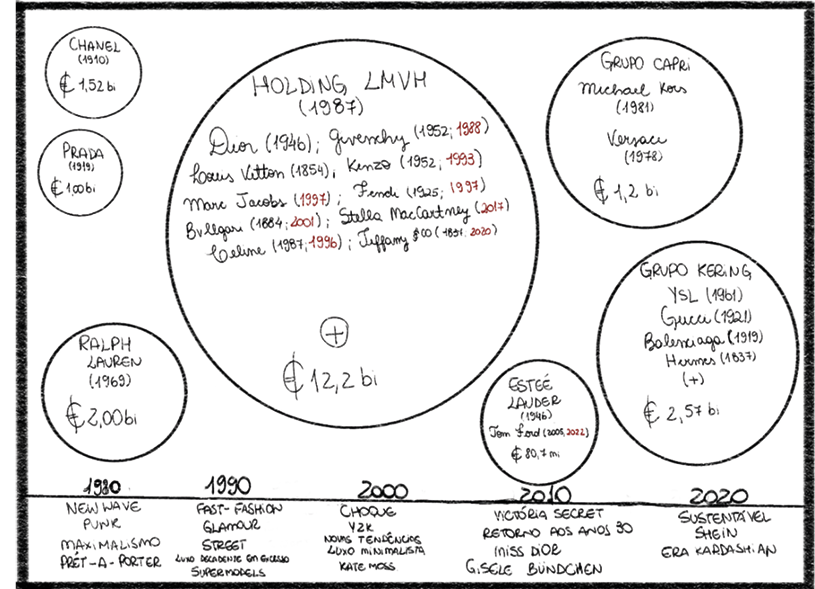 CHANEL
(1910)
₠ 1,52 bi
PRADA
(1919)
₠ 1,00 bi
RALPH
LAUREN
(1969)
₠ 2,00 bi
HOLDING LMVH
(1987)
Dior (1946); Givenchy (1952; 1988)
Louis Vitton (1854); Kenzo (1952, 1993)
Marc Jacobs (1997); Fendi (1925; 1997)
Bvllgari (1884; 2001); Stella MacCartney (2017)
Celine (1987; 1996); Tiffany $ CO (1837, 2020)
+
₠ 12,2 bi
GRUPO CAPRI
Michael Kors
(1981)
Versace
(1978)
₠ 1,2 bi
GRUPO KERING
YSL (1961)
Gucci (1921)
Balenciaga (1919)
Hermes (1837)
(+)
₠ 2,57 bi
ESTEÉ
LAUDER
(1946)
Tom Ford (2005, 2022)
₠ 80,7 mi
1980
NEW WAVE
PUNK
MAXIMALISMO
PRÉT-A-PORTER
1990
FAST-FASHION
GLAMOUR
STREET
LUXO DECADENTE EM EXCESSO
SUPERMODELS
2000
CHOQUE
Y2K
NOVAS TENDÊNCIAS
LUXO MINIMALISTA
KATE MOSS
2010
VICTÓRIA SECRET
RETORNO AOS ANOS 30
MISS DIOR
GISELE BÜNDCHEN
2020
SUSTENTÁVEL
SHEIN
ERA KARDASHIAN